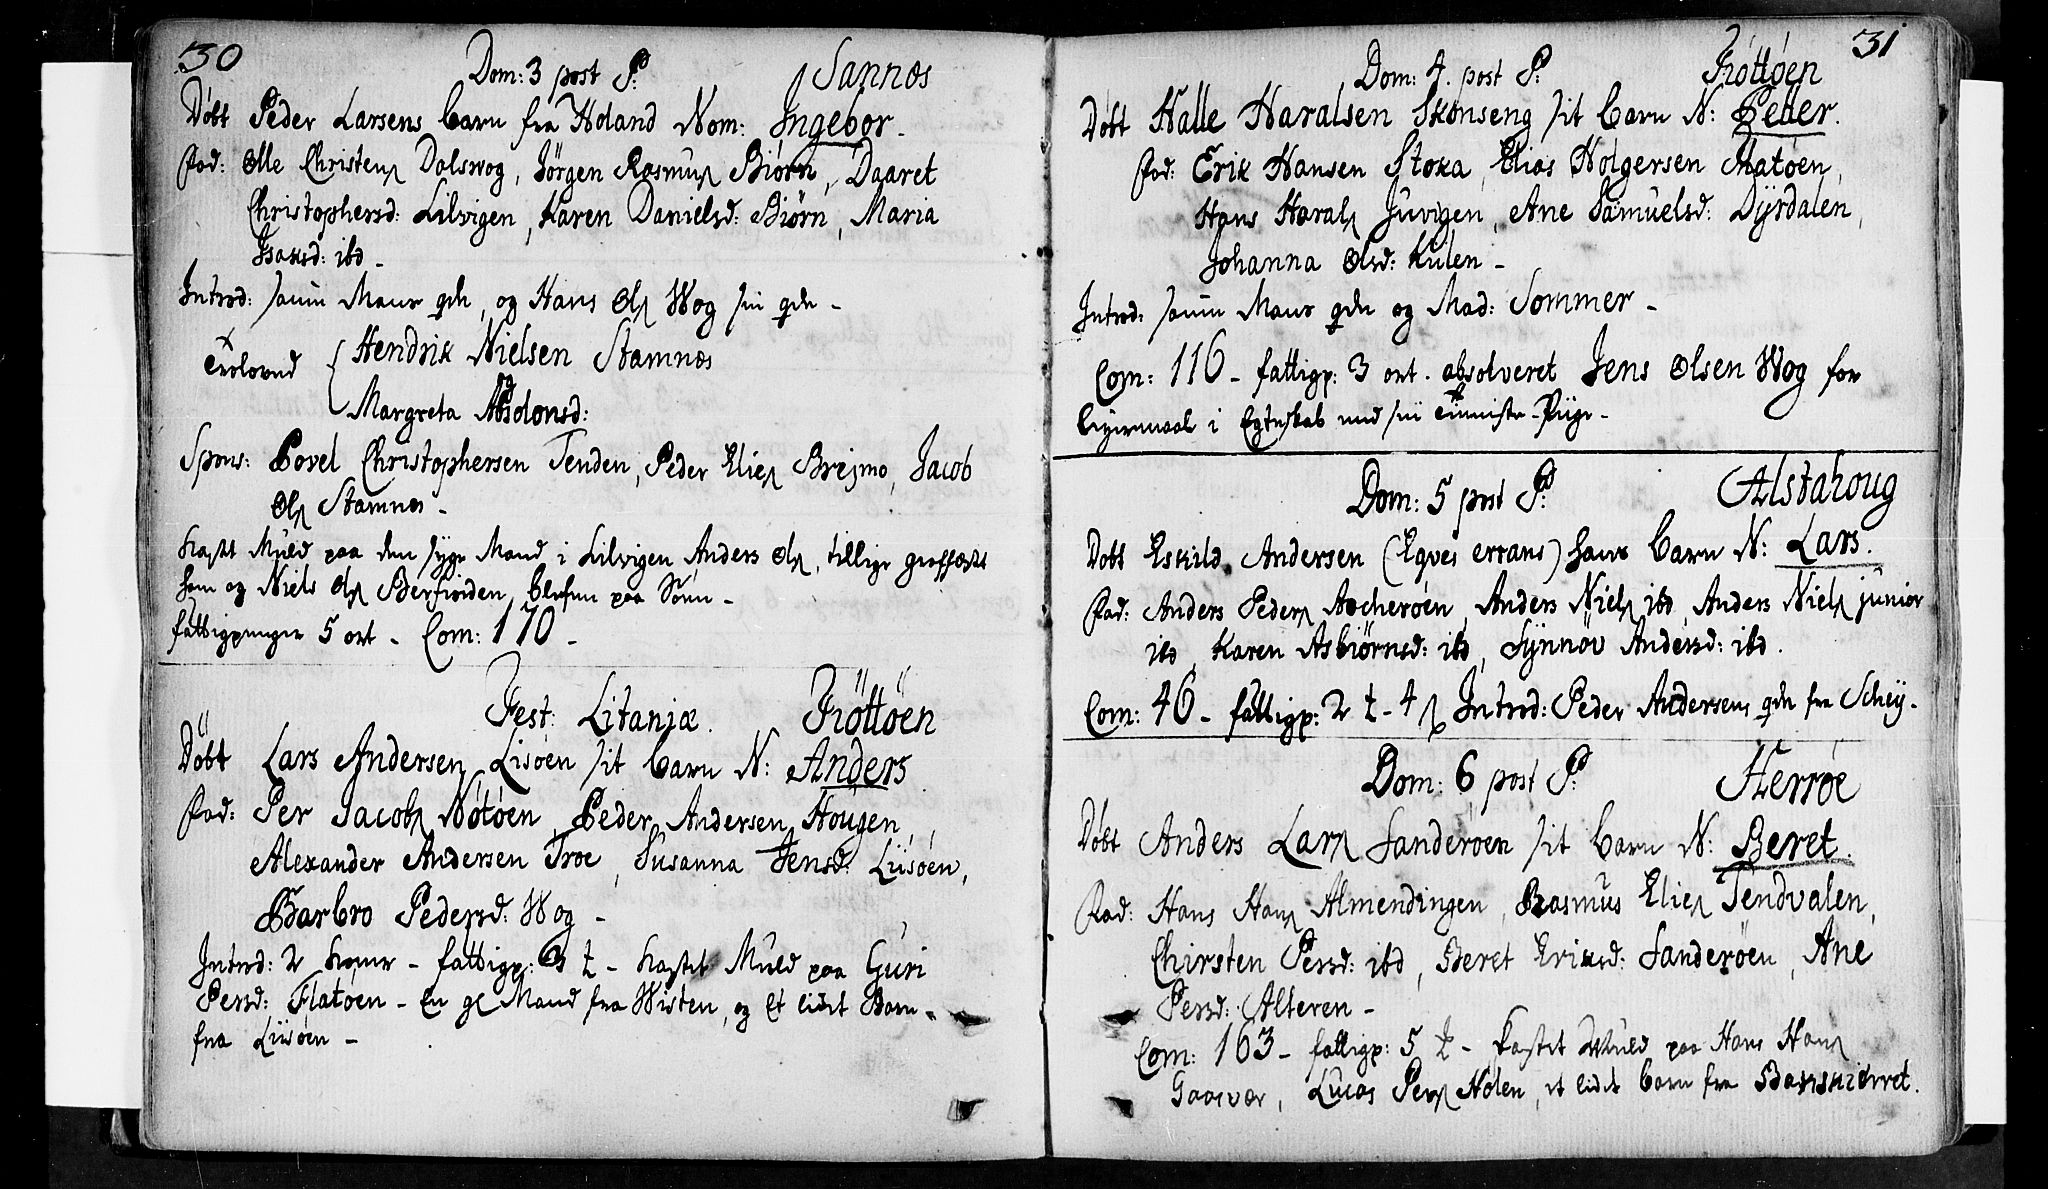 30
Dom: 3 post P: Sannæs
Döbt Peder Larsens barn fra Höland Nom: Ingebor.
Fad: Olle Christens Dalsvog, Jörgen Rasmus Biörn, Daaret
Christophersd: Lilvigen, Karen Danielsd: Biörn, Maria
Isaksd: ibd
Introd: samme Mans qde, og Hans Ols Wog sin qde
Trolovud { Hendrik Nielsen Stamnæs
Margreta Absolonsd:
Spons: Povel Christophersen Tenden, Peder Elies Brejmo, Jacob
Ols Stamnes
Kastet Muld paa den syge Mand i Lilvigen Anders Ols, tillige
som og Niels Ols blefven paa Söen
fattigpenger 5 ort. Com: 170
Fest: Litaniæ. Tröttöen
Döbt Lars Andersen Lisöen sit barn N: Anders
Fad: Per Jacobs Nötöen, Peder Andersen Hougen,
Alexander Andersen Troe, Susanna Jensd: Liisöen,
Barbro Pedersd: Wog
Introd: 2 koner fattigp: Kastet Muld paa Guri
Persd: Flatöen En gl Mand fra Wisten, og Et lidet Barn
fra Liisöen
31
Dom: 4. post P: Tröttöen
Döbt Halle Haralsen Skonseng sit barn N: Peder.
Fad: Erik Hansen Stoka, Elias Holgersen Matöen,
Hans Harals Juvigen, Ane Samuelsd: Dyrdalen,
Johanna Olsd: Kulen
Introd: samme Mans qde og Mad: Sommer
Com: 116 fattigp: 3 ort. absolveret Jens Olsen Wog for
Leyermaal i Egteskab med sin tienniste Piige
Dom: 5 post P: Alstahoug
Döbt Eskild Andersen (Eqves errans) hans barn N: Lars.
Fad: Anders Peders Ascheröen, Anders Niels ibd, Anders Niels junior
ibd, Karen Asbiörnsd: ibd, Synnöv Andersd: ibd.
Com: 46 fattigp: 2 t 4 s Introd: Peder Andersens qde fra Schey
Dom: 6 post P: Herröe
Döbt Anders Lars Sanderöen sit barn N: Beret.
Fad: Hans Hans Almendingen, Rasmus Elies Tendvalen,
Chirsten Persd: ibd, Beret Eriksd: Sanderöen, Ane
Persd: Alteren
Com: 163 fattigp: 5 t Kastet Muld paa Hans Hans
Gaasvær, Lucas Pers Holen, et lidet barn fra